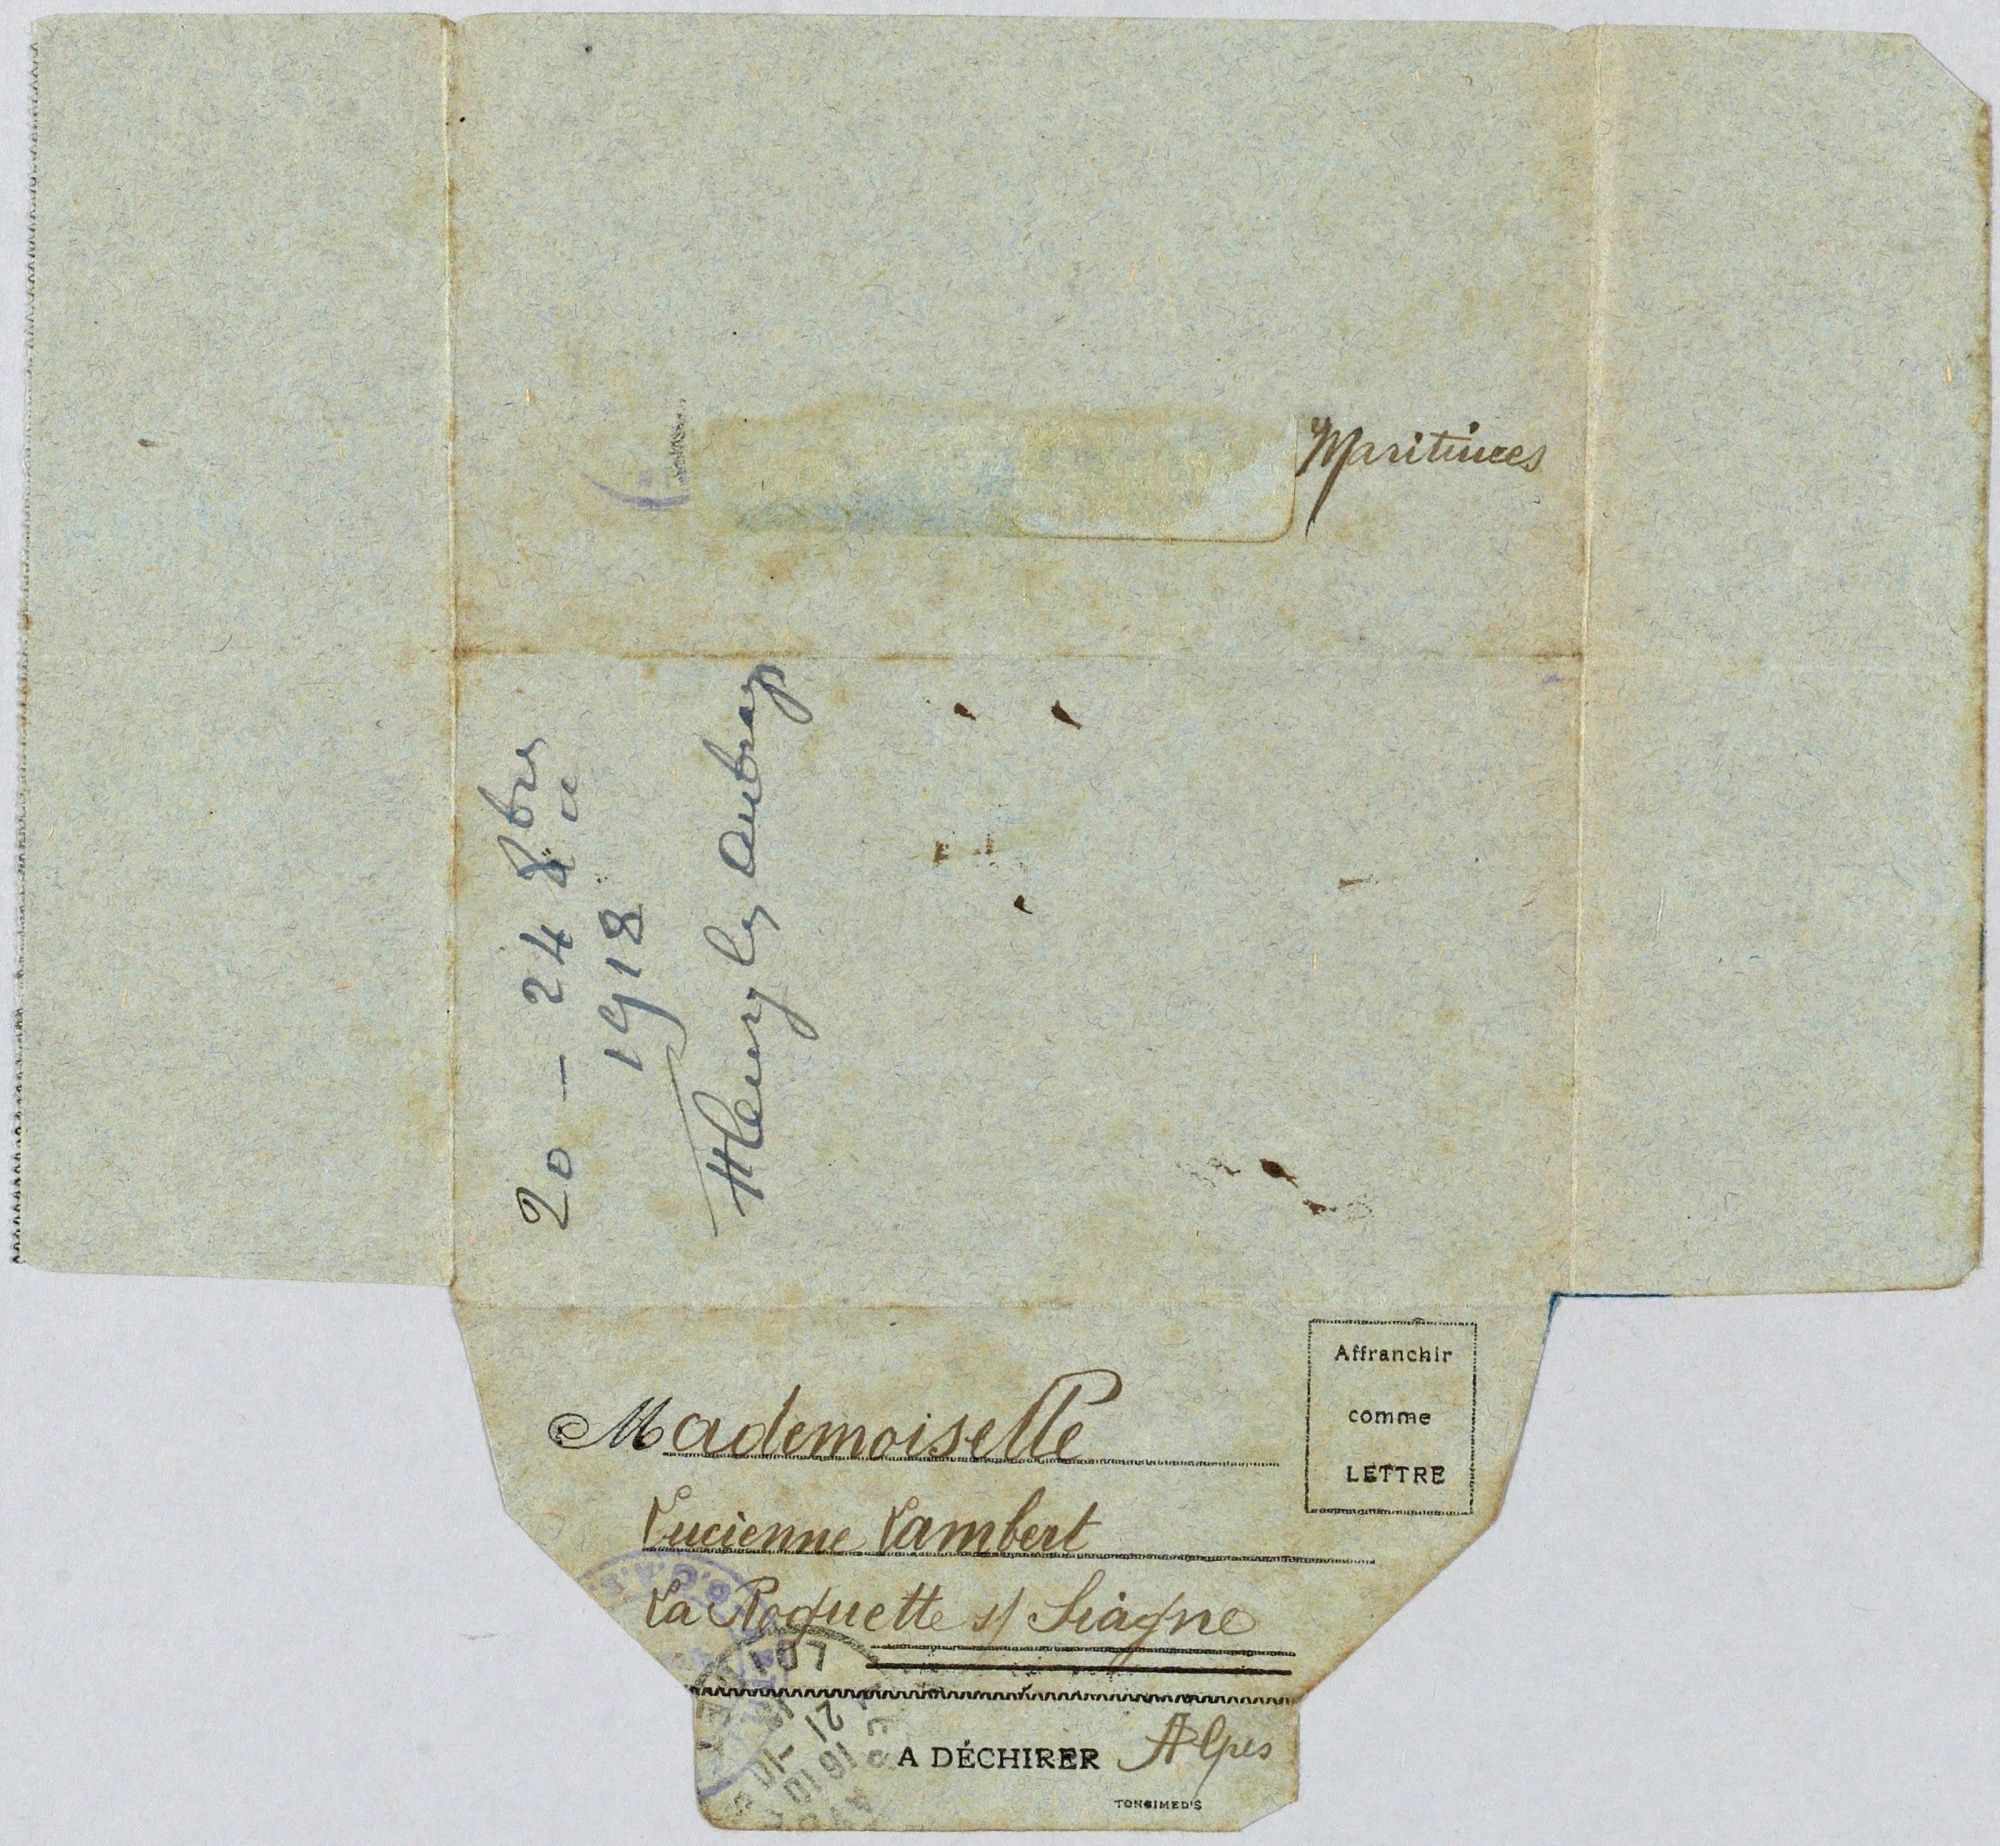 Maritimes
20 - 24 8bre
1918
Fleury les Aubrays
Affranchir
comme
LETTRE
Mademoiselle
Lucienne Lambert
La Roquette s/ Siagne
A DÉCHIRER Alpes
TONGIMED'S